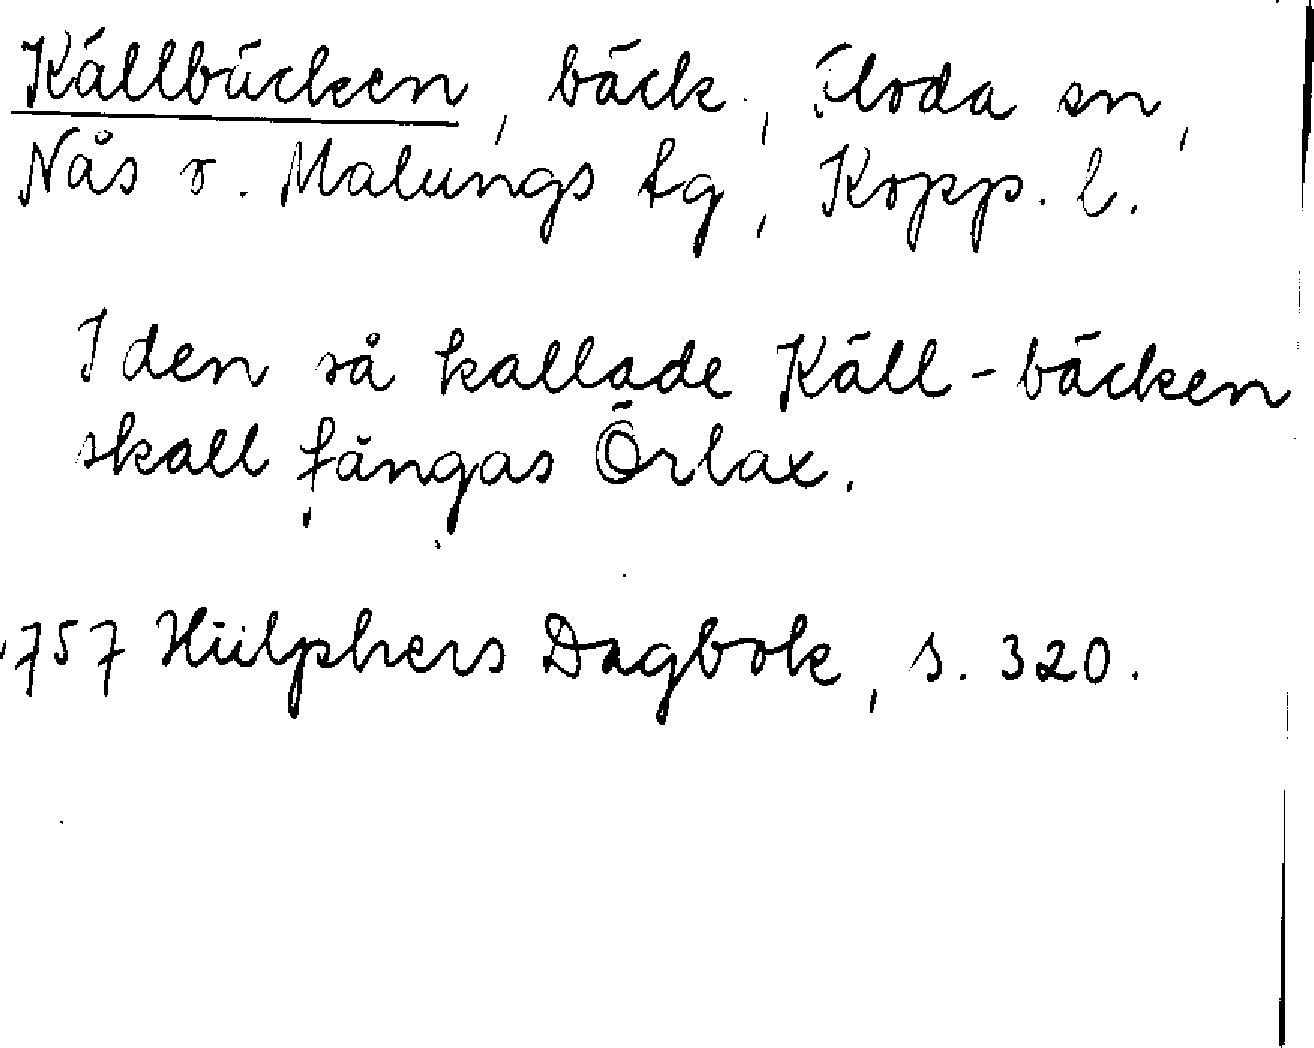 Källbäcken, bäck, Floda sn,
Nås o. Malungs tg, Kopp. l.
I den så kallade Käll-bäcken
skall fångas Örlax.
1757 Hülphers Dagbok, s. 320.